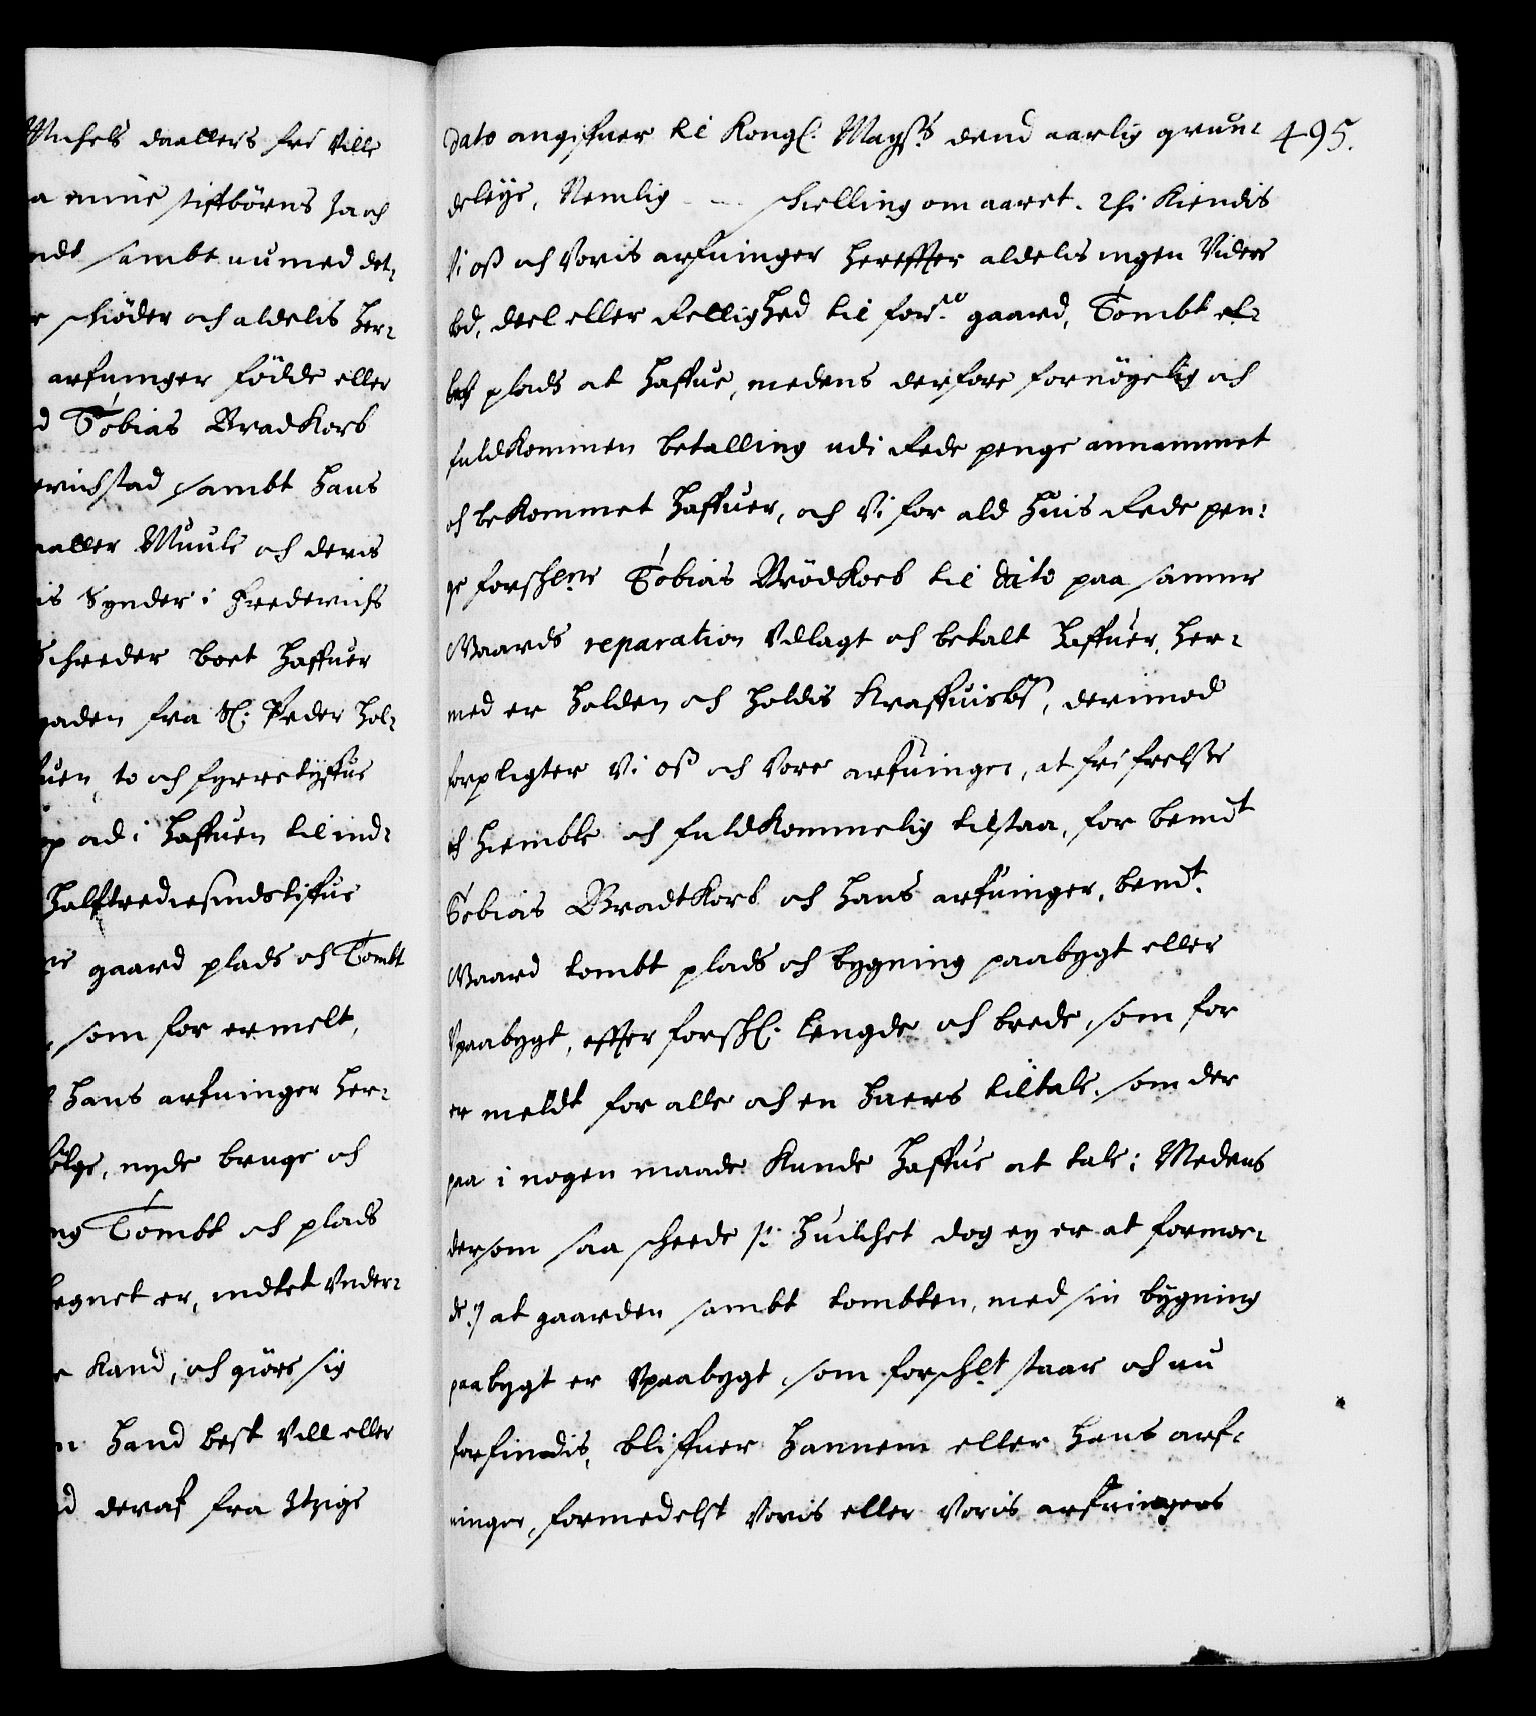 Michels daallers frj Ville
a mine stiftbörns Ja och
ndt sambt nu med det¬
r schiöder och aldelis her¬
arfuinger födde eller
d Tobias Bradkorb
erichstad sambt hans
aller Muule och deris
is Synder i Frederichs
Schreder boet haffuer
gaden fra Sl: Peder Hol¬
uen, to och fyrretyffue
p ad i haffuen til ind¬
halftrediesindstiffue
ne gaard plads och Tombt
som for er melt,
hans arfuinger her¬
ölge, nyde bruge och
ng Tombt och plads
egnet er, indtet Vnder¬
e kand, och giöre sig
n hand best Vill eller
d deraf fra Itzige
495.
dato angifuer til Kongl. Mayts dend aarlig grun¬
deleye, Nemlig - - - schelling om aaret. Thi Kiendis
Vi oß och Voris arfuinger hereffter aldelis ingen Videre
lod, deel eller Rettighed til forne gaard, Tombt el¬
ler plads at haffue, medens derfore fornöyelig och
fuldkommen betalling udi Rede penge annammet
och bekommet haffuer, och Vi for ald huis Rede pen¬
ge forschrne Tobias Brödkorb til dato paa samme
Gaards reparation Vdlagt och betalt haffuer, her¬
med er holden och holdis Kraffuislös, derimod
forpligter Vi oß och Vore arfuinger, at fri frelse
och hiemble och fuldkommelig tilstaa, for bemdt
Tobias Bradtkorb och hans arfuinger, bemdt.
Gaard tombt plads och bygning paabygt eller
Vpaabygt, effter forschl. lengde och brede, som for
er meldt for alle och en huers tiltale, som der
paa i nogen maade Kunde haffue at tale; Medens
dersom saa scheede /: huilchet dog ey er at formoe¬
de :/ at gaarden sambt tombten, med sin bygning
paabygt er Vpaabygt, som forschlt staar och nu
forfindis, bliffuer hannem eller hans arf¬
uinger, formedelst Voris eller Voris arfuingers